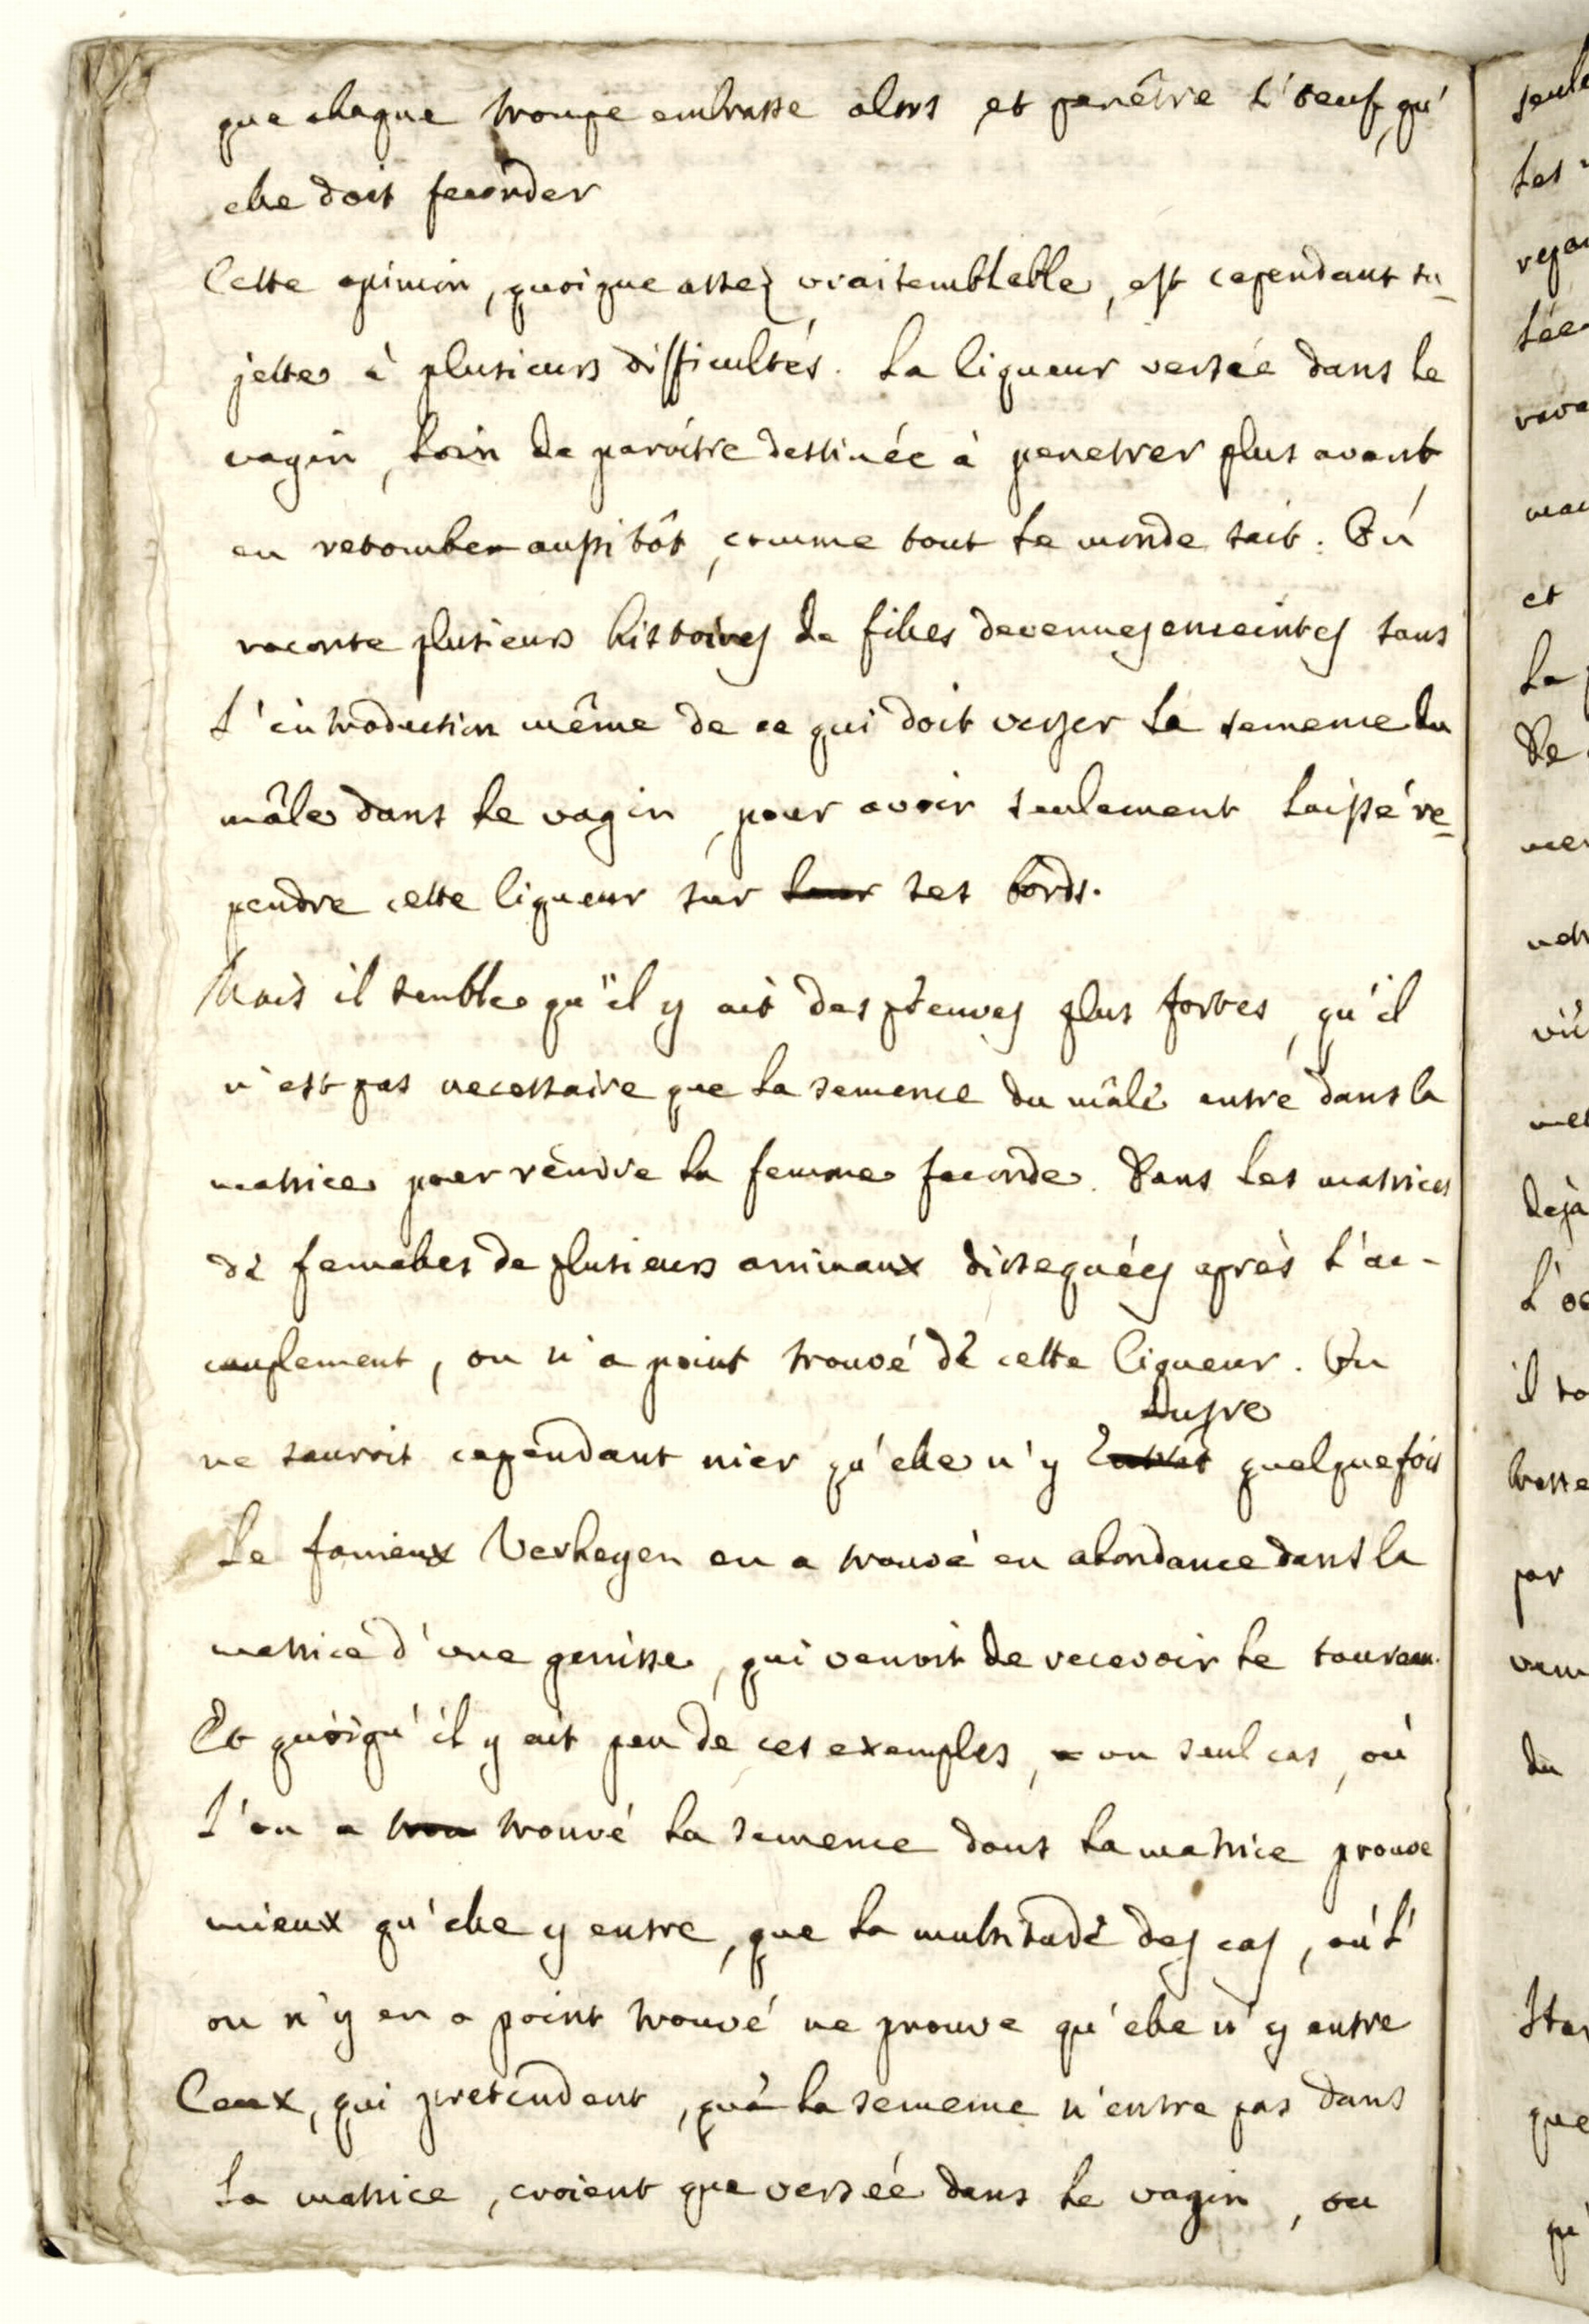 que chaque troupe embrasse alors et penêtre l'oeuf, qu'
elle doit feconder
Cette opinion, quoique assez vraisemblable, est cependant su-
jette à plusieurs difficultés. La liqueur versée dans le
vagin, loin de paroitre destinée à penetrer plus avant
en retombe aussitôt, comme tout le monde sait. On
raconte plusieurs histoires de filles devenues enceintes sans
l'introduction même de ce qui doit verser la semence du
mâle dans le vagin, pour avoir seulement laissé re-
pendre cette liqueur sur leur ses bords.
Mais il semble qu'il y ait des preuves plus fortes, qu'il
n'est pas necessaire que la semence du mâle entre dans la
matrice pour rendre la femme feconde. Dans les matrices
de femelles de plusieurs animaux dissequées après l'ac-
couplement, on n'a point trouvé de cette liqueur. On
entre
ne sauroit cependant nier qu'elle n'y quelquefois
Le fameux Verheyen en a trouvé en abondance dans la
matrice d'une genisse, qui venoit de recevoir le taureau.
Et quoiqu'il y ait peu de ces exemples, un seul cas, où
l'on a trou trouvé la semence dans la matrice prouve
mieux qu'elle y entre, que la multitude des cas, où l'
on n'y en a point trouvé ne prouve qu'elle n'y entre
Ceux, qui pretendent, que la semence n'entre pas dans
la matrice, croient que versée dans le vagin, ou
seule
les
et
la
De
dejà
il
par
du
que
qu'